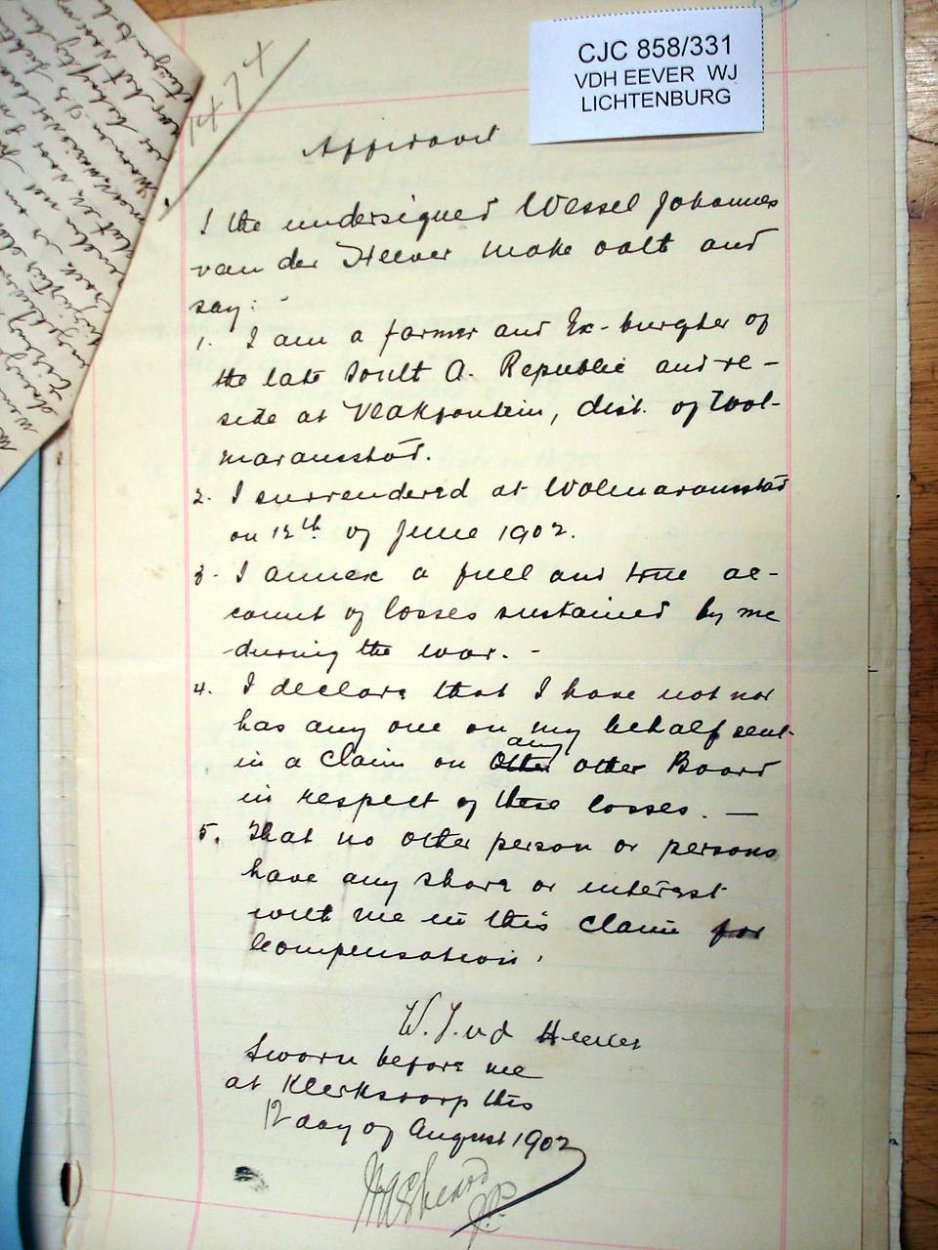 CJC 858/331
VDH EEVER WJ
LICHTENBURG
1474
Affidavit
I the undersigned Wessel Johannes
van der Heever make oath and
say: -
1. I am a farmer and Ex-burgher of
the late South A. Republic and re-
side at Vlakfontein, dist. of Wol-
maransstad.
2. I surrendered at Wolmaransstad
on 12th of June 1902.
3. I annex a full and true ac-
count of losses sustained by me
during the war. -
4. I declare that I have not nor
has any one on my behalf sent
any
in a claim on other Board
in respect of these losses. —
5. That no other person or persons
have any share or interest
with me in this claim for
Compensation.
W. J. v d Heever
Sworn before me
at Klerksdorp this
12 day of August 1902
J.P.